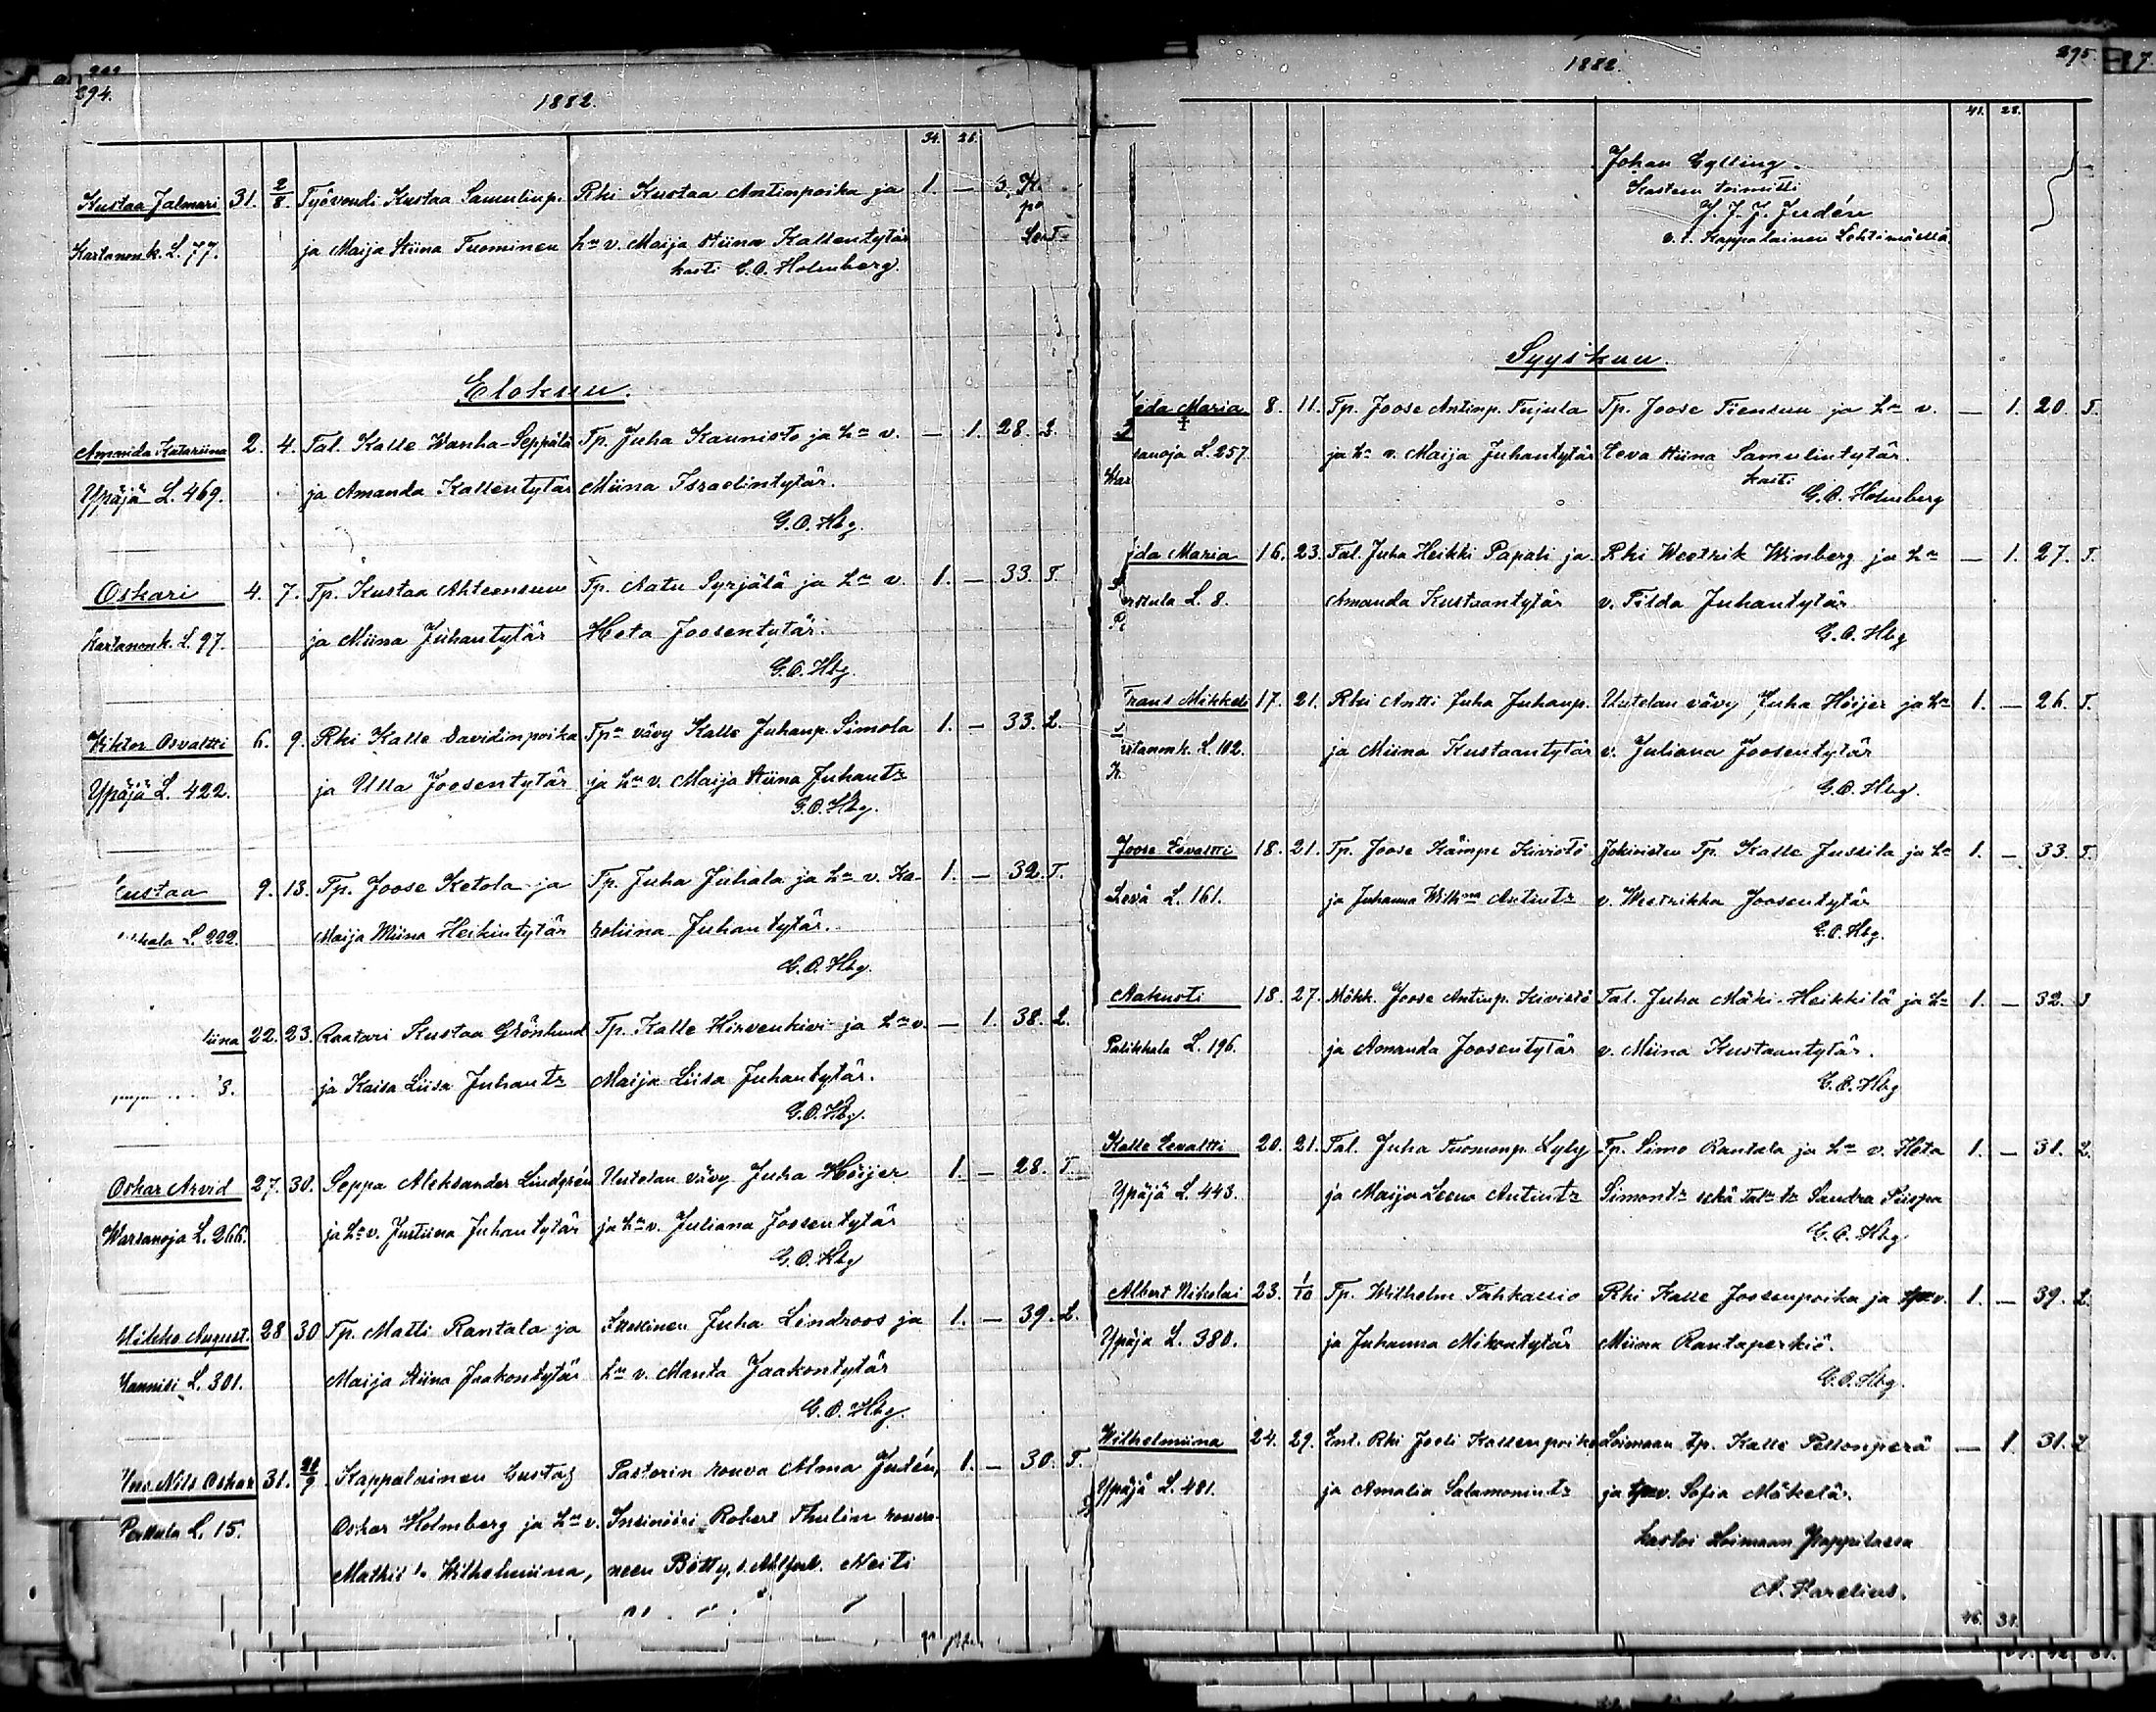 294.
1882.
34. 26.
Kustaa Jalmari 31. 2/8. Työvoudi Kustaa Samulinp. Rhi Kustaa Antinpoika ja 1. —
Kartanonk. L. 77. ja Maija Stiina Tuominen hn v. Maija Stiina Kallentytär
kasti G. O. Holmberg.
Elokuu.
Amanda Katariina 2. 4. Tal. Kalle Wanha-Seppälä Tp. Juha Kaunisto ja hn v. — 1. 28. L.
Ypäjä L. 469. ja Amanda Kallentytär Miina Israelintytär.
G. O. Hbg.
Oskari 4. 7. Tp. Kustaa Ahteensuu Tp. Aatu Syrjälä ja hn v. 1. — 33. T.
Kartanonk. L. 97. ja Miina Juhantytär Heta Joosentytär.
G. O. Hbg.
Wiktor Osvaltti 6. 9. Rhi Kalle Davidinpoika Tpn vävy Kalle Juhanp. Simola 1. — 33. L.
Ypäjä L. 422. ja Ulla Joosentytär ja hn v. Maija Stiina Juhantr
G. O. Hbg.
Kustaa 9. 13. Tp. Joose Ketola ja Tp. Juha Juhala ja hn v. Ka- 1. — 32. T.
L. 222. Maija Miina Heikintytär roliina Juhantytär.
G. O. Hbg.
iina 22. 23. Raatari Kustaa Grönlund Tp. Kalle Hirvenkivi ja hn v. — 1. 38. L.
3. ja Kaisa Liisa Juhantr Maija Liisa Juhantytär.
G. O. Hbg.
Oskar Arvid 27. 30. Seppa Aleksander Lindgrén Uutelan vävy Juha Höijer 1. — 28. T.
Warsanoja L. 266. ja hn v. Justiina Juhantytär ja hn v. Juliana Joosentytär
G. O. Hbg
Mikko August. 28 30 Tp. Matti Rantala ja Leskinen Juha Lindroos ja 1. — 39. L.
L. 301. Maija Stiina Jaakontytär hn v. Manta Jaakontytär
G. O. Hbg.
Nils Oskar 31. 21/9 Kappalainen Gustaf Pastorin rouva Alma Judén, 1. — 30. T.
Perttula L. 15. Oskar Holmberg ja hn v. Insinööri Robert Thulin rouvi-
Wilhelmiina, neen Betty, Neiti
295.
1882.
41. 28.
Johan Gylling.
Kasteen toimitti
J. J. J. Judén
v. t. Kappalainen Lehtimäellä
Syyskuu.
Ida Maria 8. 11. Tp. Joose Antinp. Tujula Tp. Joose Tiensuu ja hn v. — 1. 20. T.
sanoja L. 257. ja hn v. Maija Juhantytär Eeva Stiina Samulintytär.
kasti
G. O. Holmberg
Ida Maria 16. 23. Tal. Juha Heikki Papali ja Rhi Westrik Winberg ja hn — 1. 27. T.
L. 8. Amanda Kustaantytär v. Tilda Juhantytär
G. O. Hbg
Frans Mikkeli 17. 21. Rhi Antti Juha Juhanp. Uutelan vävy Juha Höijer ja hn 1. — 26. T.
rtanonk. L. 102. ja Miina Kustaantytär v. Juliana Joosentytär
G. O. Hbg.
Joose Evaltti 18. 21. Tp. Joose Kämpe Kivistö Jokivisten Tp. Kalle Jussila ja hn 1. — 33. T.
Levä L. 161. ja Juhanna Wilhna Antintr v. Westrikka Joosentytär
G. O. Hbg.
Aakusti 18. 27. Mökk. Joose Antinp. Kivistö Tal. Juha Mäki-Heikkilä ja hn 1. — 32.
Palikkala L. 196. ja Amanda Joosentytär v. Miina Kustaantytär.
G. O. Hbg
Kalle Eevaltti 20. 21. Tal. Juha Tuomonp. Lyly Tp. Simo Rantala ja hn v. Heta 1. — 31. L.
Ypäjä L. 443. ja Maija Leena Antintr Simontr sekä Taln tr Sandra Piispa
G. O. Hbg
Albert Nikolai 23. 1/10 Tp. Wilhelm Tahkallio Rhi Kalle Joosenpoika ja v. 1. — 39. L.
Ypäjä L. 380. ja Juhanna Mikontytär Miina Rantaperkiö.
G. O. Hbg.
Wilhelmiina 24. 29. Ent. Rhi Joeli Kallenpoika Loimaan tp. Kalle Peltonperä — 1 31. L
Ypäjä L. 481. ja Amalia Salamonintr ja v. Sofia Mäkelä.
kastoi Loimaan Pappilassa
A. Karelius.
46. 31.